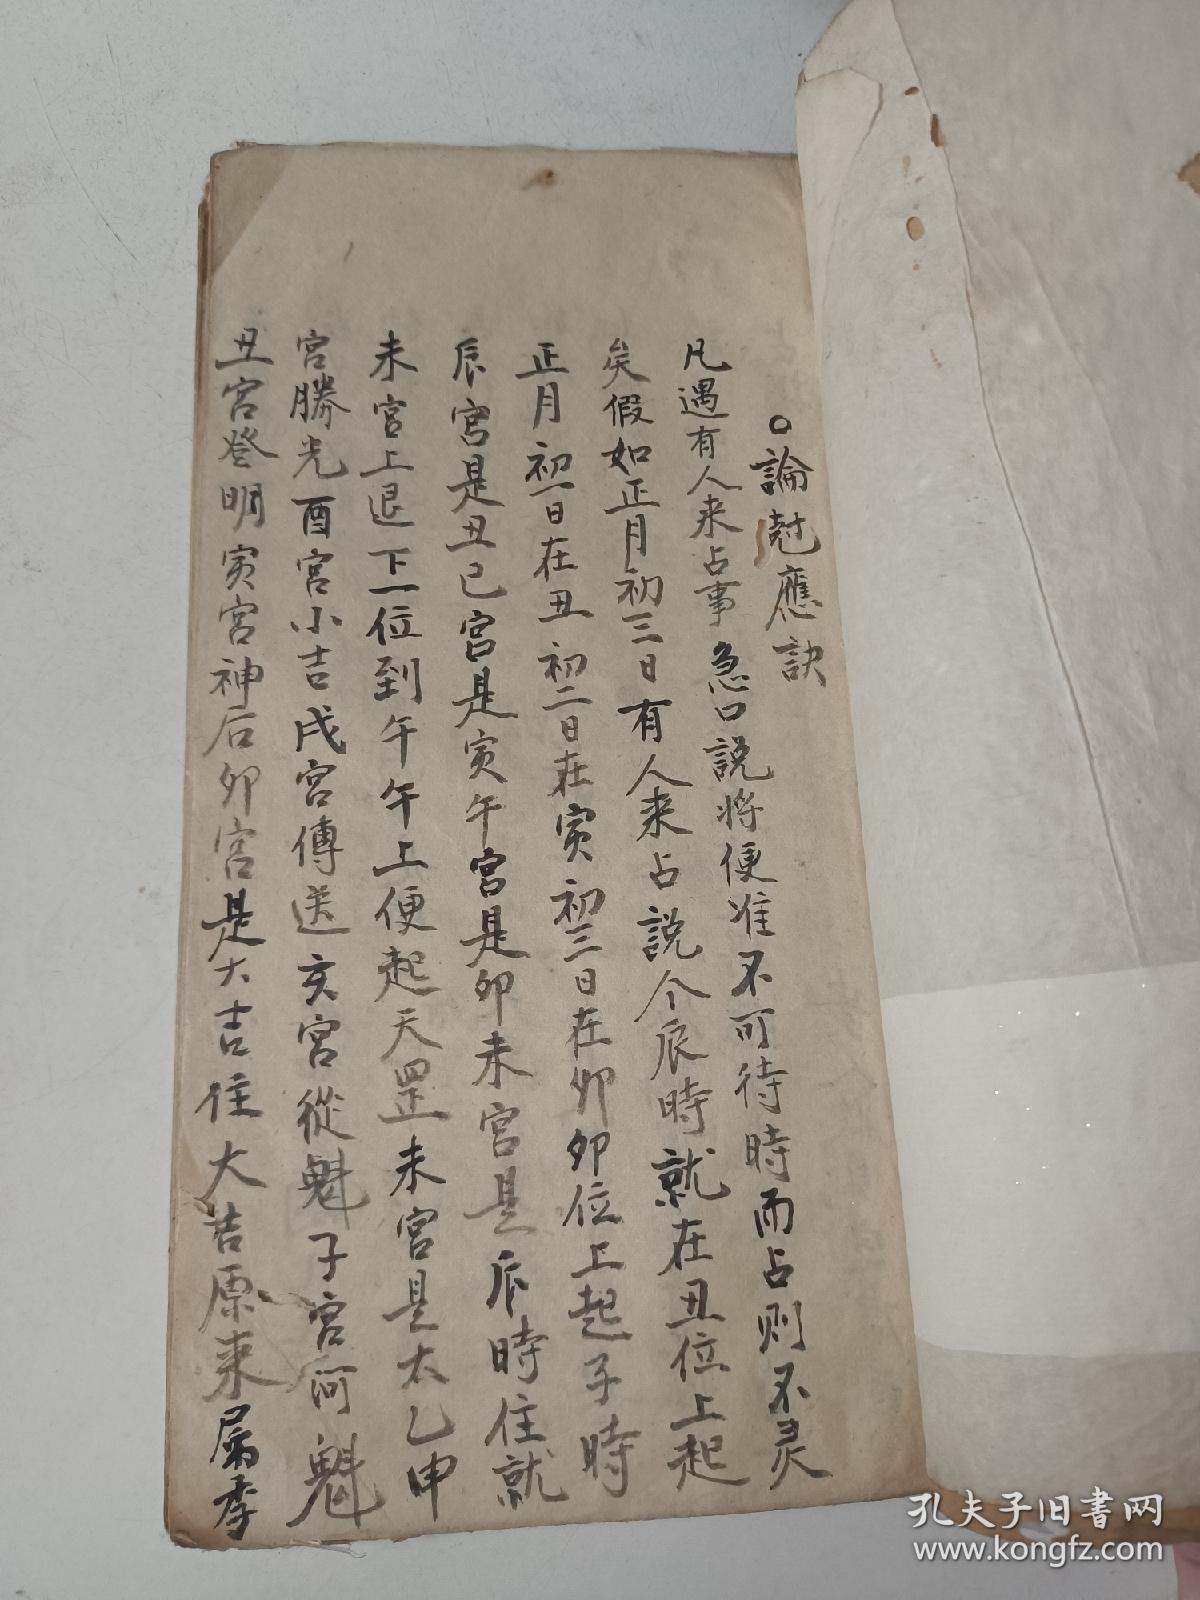 ○論尅應訣
凡遇有人来占事急口説将便准不可待時而占则不灵
矣假如正月初三日有人来占説个辰時就在丑位上起
正月初一日在丑初二日在寅初三日在卯卯位上起子時
辰宫是丑巳宫是寅午宫是卯未宫是辰時住就
未宫上退下一位到午午上便起天罡未宫是太乙申
宫勝光酉宫小吉戌宫傳送亥宫從魁子宫河魁
丑宫登明寅宫神后卯宫是大吉住大吉原来屬李
孔夫子旧书网
www.kongfz.com